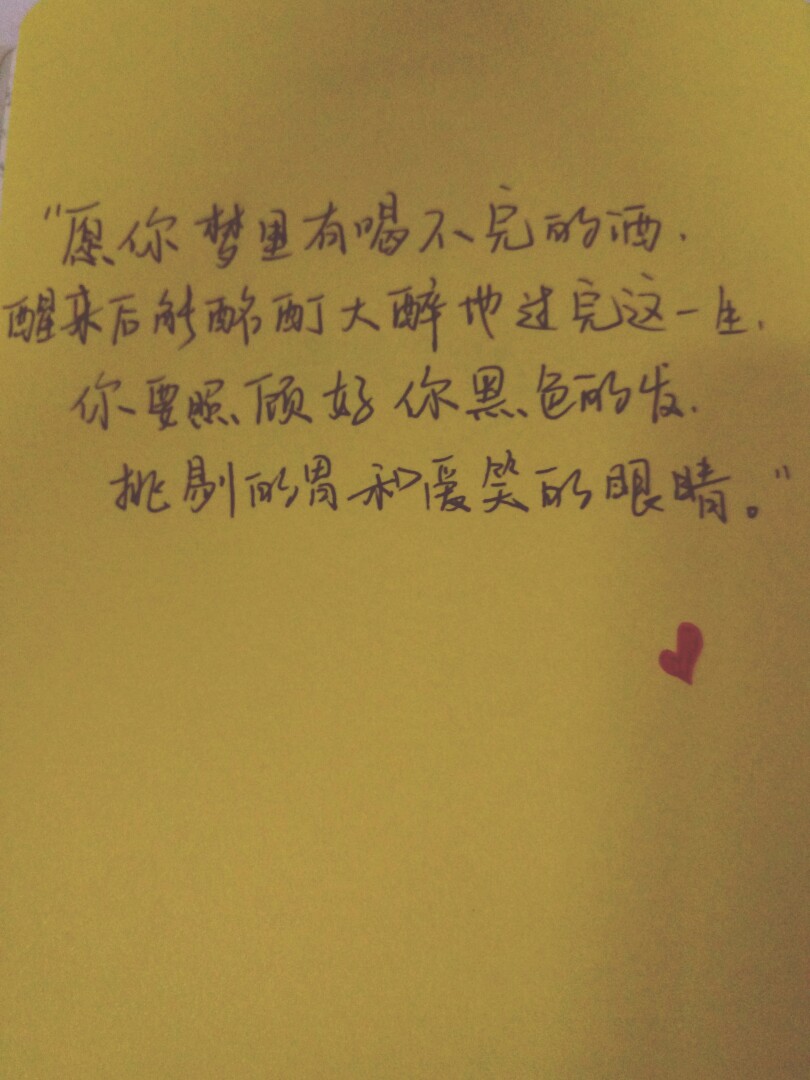 "愿你梦里有喝不完的酒.
醒来后能酩酊大醉地过完这一生.
你要照顾好你黑色的发.
挑剔的胃和爱笑的眼睛。"